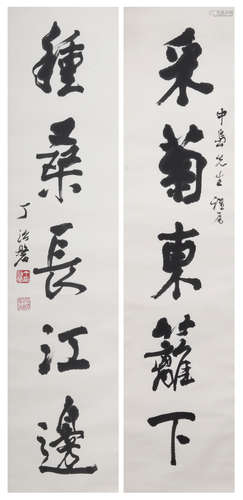 采菊東籬下
中岳先生
種桑長江邊
丁治磐